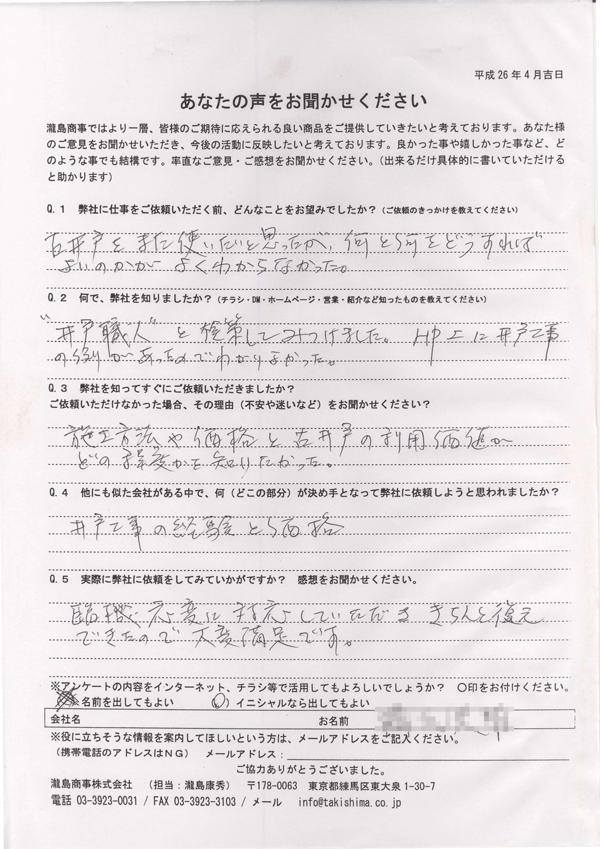 平成26年4月吉日
あなたの声をお聞かせください
瀧島商事ではより一層、皆様のご期待に応えられる良い商品をご提供していきたいと考えております。あなた様
のご意見をお聞かせいただき、今後の活動に反映したいと考えております。良かった事や嬉しかった事など、ど
のような事でも結構です。率直なご意見・ご感想をお聞かせください。（出来るだけ具体的に書いていただける
と助かります）
Q.1 弊社に仕事をご依頼いただく前、どんなことをお望みでしたか？（ご依頼のきっかけを教えてください）
古井戸をまた使いたいと思ったが、何とら何をどうすれば
よいのかが よくわからなかった。
Q.2 何で、弊社を知りましたか？（チラシ・DM・ホームページ・営業・紹介など知ったものを教えてください）
"井戸職人" と検策してみつけました。 HP上に井戸工事
の例があったのでわかりよかった。
Q.3 弊社を知ってすぐにご依頼いただきましたか？
ご依頼いただけなかった場合、その理由（不安や迷いなど）をお聞かせください？
施工方法や価格と古井戸の利用価値が
どの程度かを知りたかった。
Q.4 他にも似た会社がある中で、何（どこの部分）が決め手となって弊社に依頼しようと思われましたか？
井戸工事の経験と価格
Q.5 実際に弊社に依頼をしてみていかがですか？ 感想をお聞かせください。
臨機応変に対応していただき きちんと復元
できたので 大変満足です。
※アンケートの内容をインターネット、チラシ等で活用してもよろしいでしょうか？ 〇印をお付けください。
名前を出してもよい （ ）イニシャルなら出してもよい
会社名 お名前
※役に立ちそうな情報を案内してほしいという方は、メールアドレスをご記入ください。
（携帯電話のアドレスはNG） メールアドレス：
ご協力ありがとうございました。
瀧島商事株式会社 （担当：瀧島康秀） 〒178-0063 東京都練馬区東大泉1-30-7
電話 03-3923-0031 / FAX 03-3923-3103 / メール info@takishima.co.jp